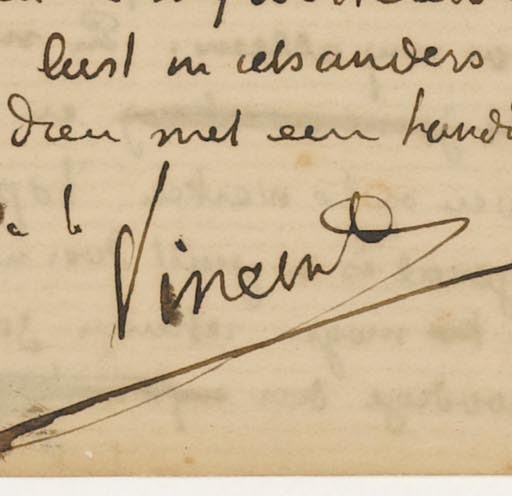 lust in iets anders
dien met een hand
à t
Vincent